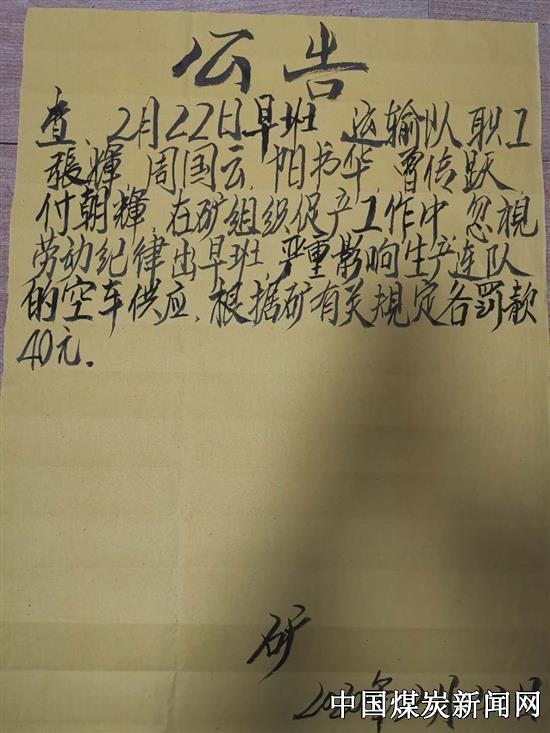 公告
查、2月22日早班 运输队职工
張輝 周国云, 阳书华, 曾传跃
付朝輝, 在矿组织促产工作中 忽視
劳动纪律出早班, 严重影响生产连队
的空车供应, 根据矿有关规定各罚款
40元。
矿
2020年2月22日
中国煤炭新闻网